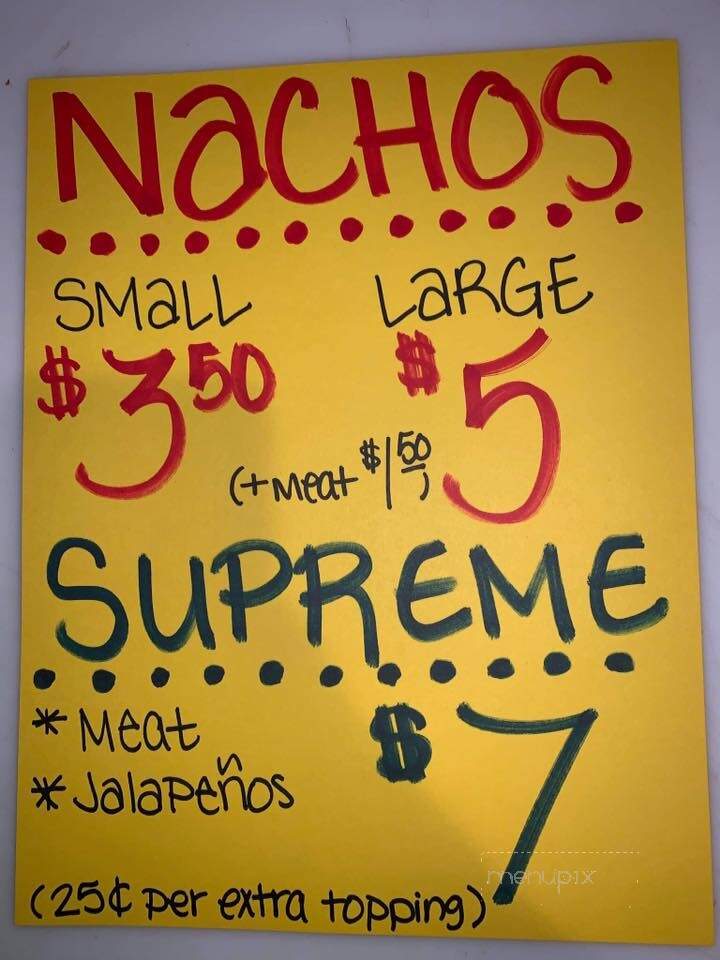 NaCHOS
SMaLL LaRGE
$3.50 $5
(+ Meat $1.50)
SUPREME
* Meat $7
* Jalapeños
(25¢ per extra topping)
menupix